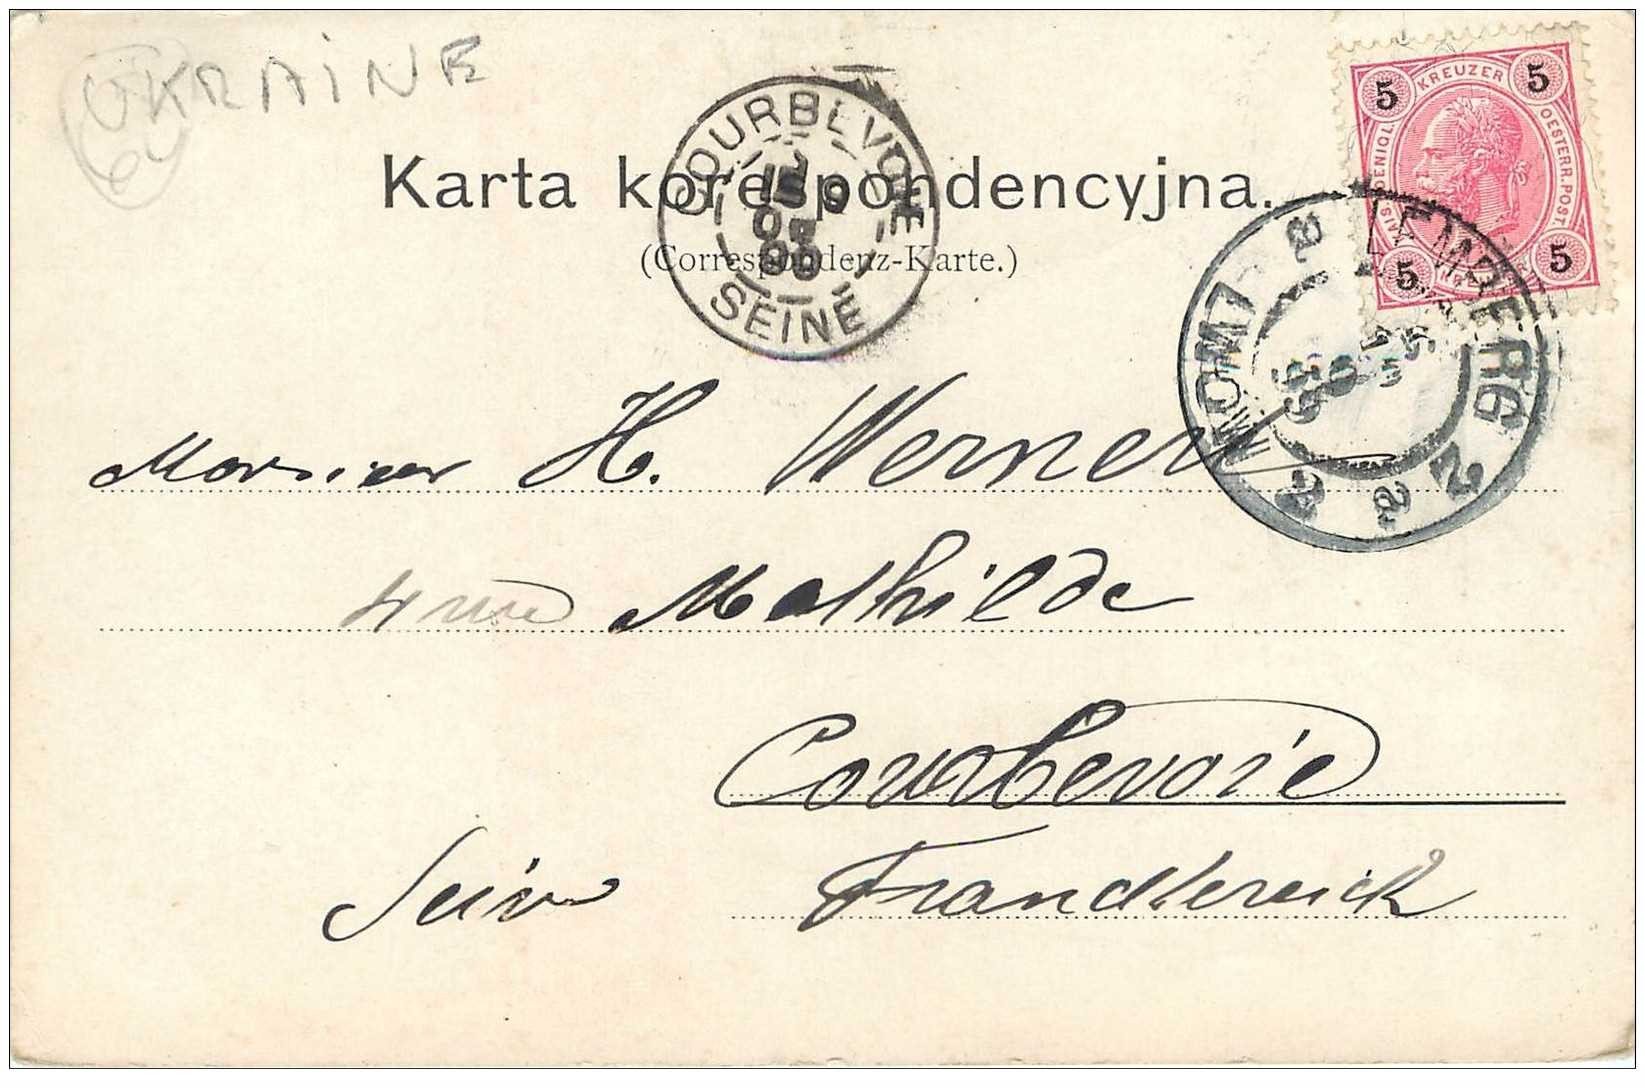 UKRAINE
Karta korespondencyjna.
(Correspondenz-Karte.)
COURBEVOIE
SEINE
KAIS. KOENIGL. OESTERR. POST
5 KREUZER 5
5 5
LEMBERG 2
LWOW 2
99
Monsieur H. Werner
4 rue Mathilde
Courbevoie
Seine Frankreich